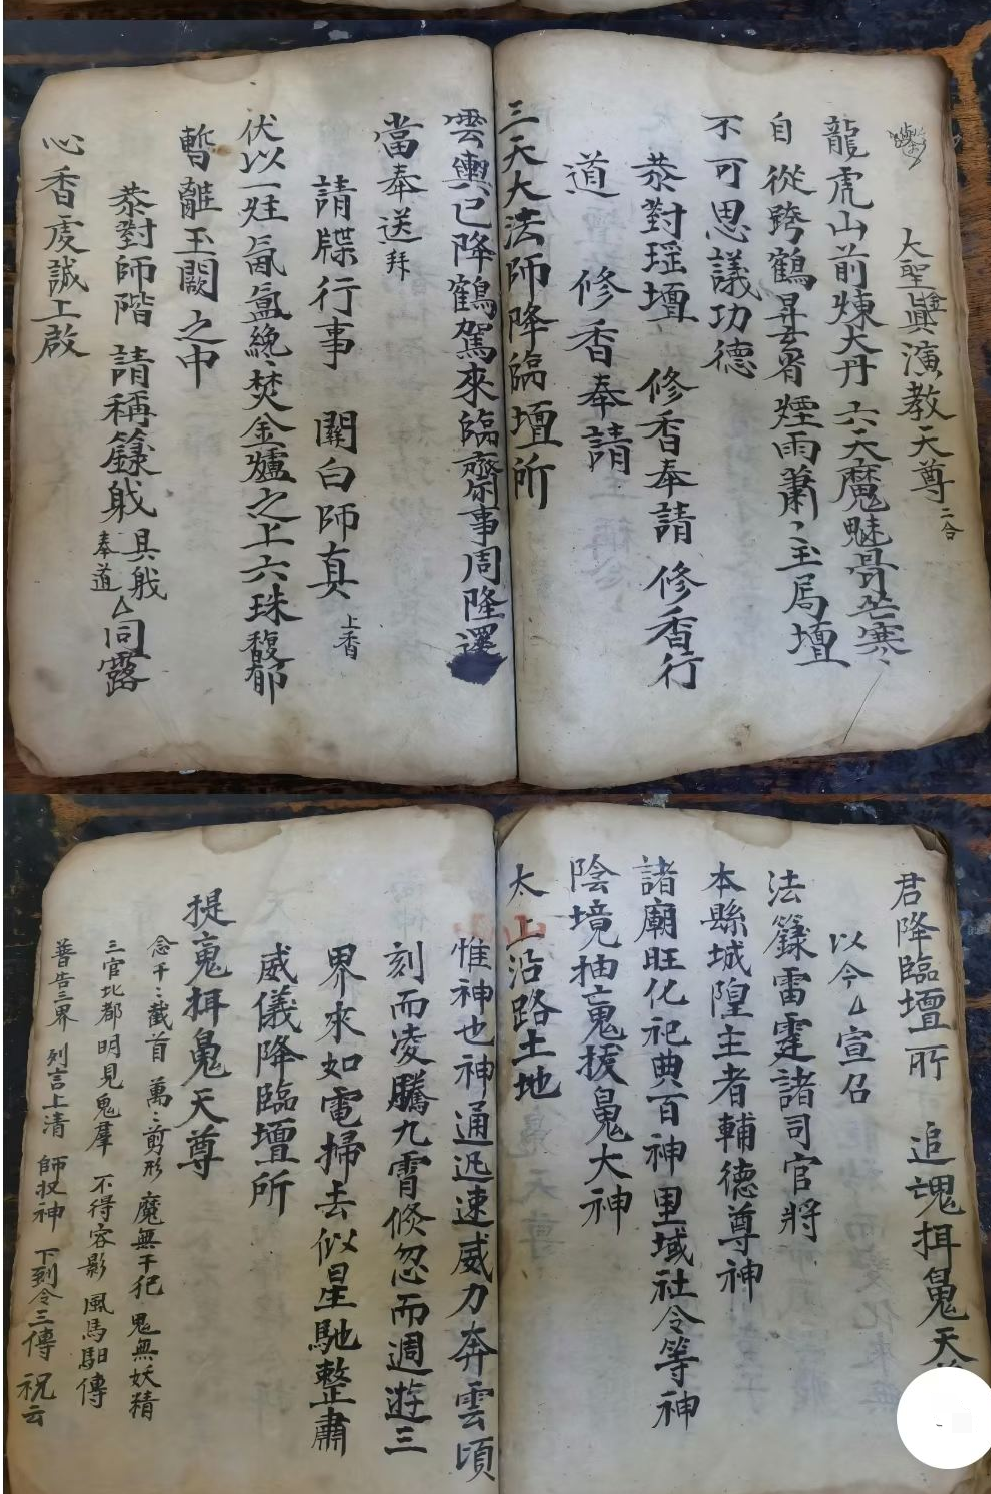 大聖眞演教天尊二合
龍虎山前煉大丹 六天魔魅骨芒寒〻
自從跨鶴昇雲霄 煙雨蕭〻玉局壇
不可思議功德
恭對瑶壇 修香奉請 修香行
道 修香奉請
三天大法師降臨壇所
雲輿已降鶴駕來臨齋事周隆還
當奉送拜
請牒行事 關白師真 上香
伏以一炷氤氲纔焚金爐之上六珠馥郁
暫離玉闕之中
恭對師階 請稱籙職 具職奉道△同露
心香虔誠上啟
君降臨壇所 追魂捐鬼天
以今△宣召
法籙雷霆諸司官將
本縣城隍主者輔德尊神
諸廟旺化祀典百神里域社令等神
陰境抽魂拔鬼大神
太上沿路土地
惟神也神通迅速威力奔雲頃
刻而凌騰九霄倏忽而週遊三
界來如電掃去似星馳整肅
威儀降臨壇所
提魂捐鬼天尊
念千〻截首 萬〻剪形 魔無干犯 鬼無妖精
三官北都明見鬼羣 不得容影 風馬馹傳
普告三界 列言上清 師收神 下到令三傳 祝云